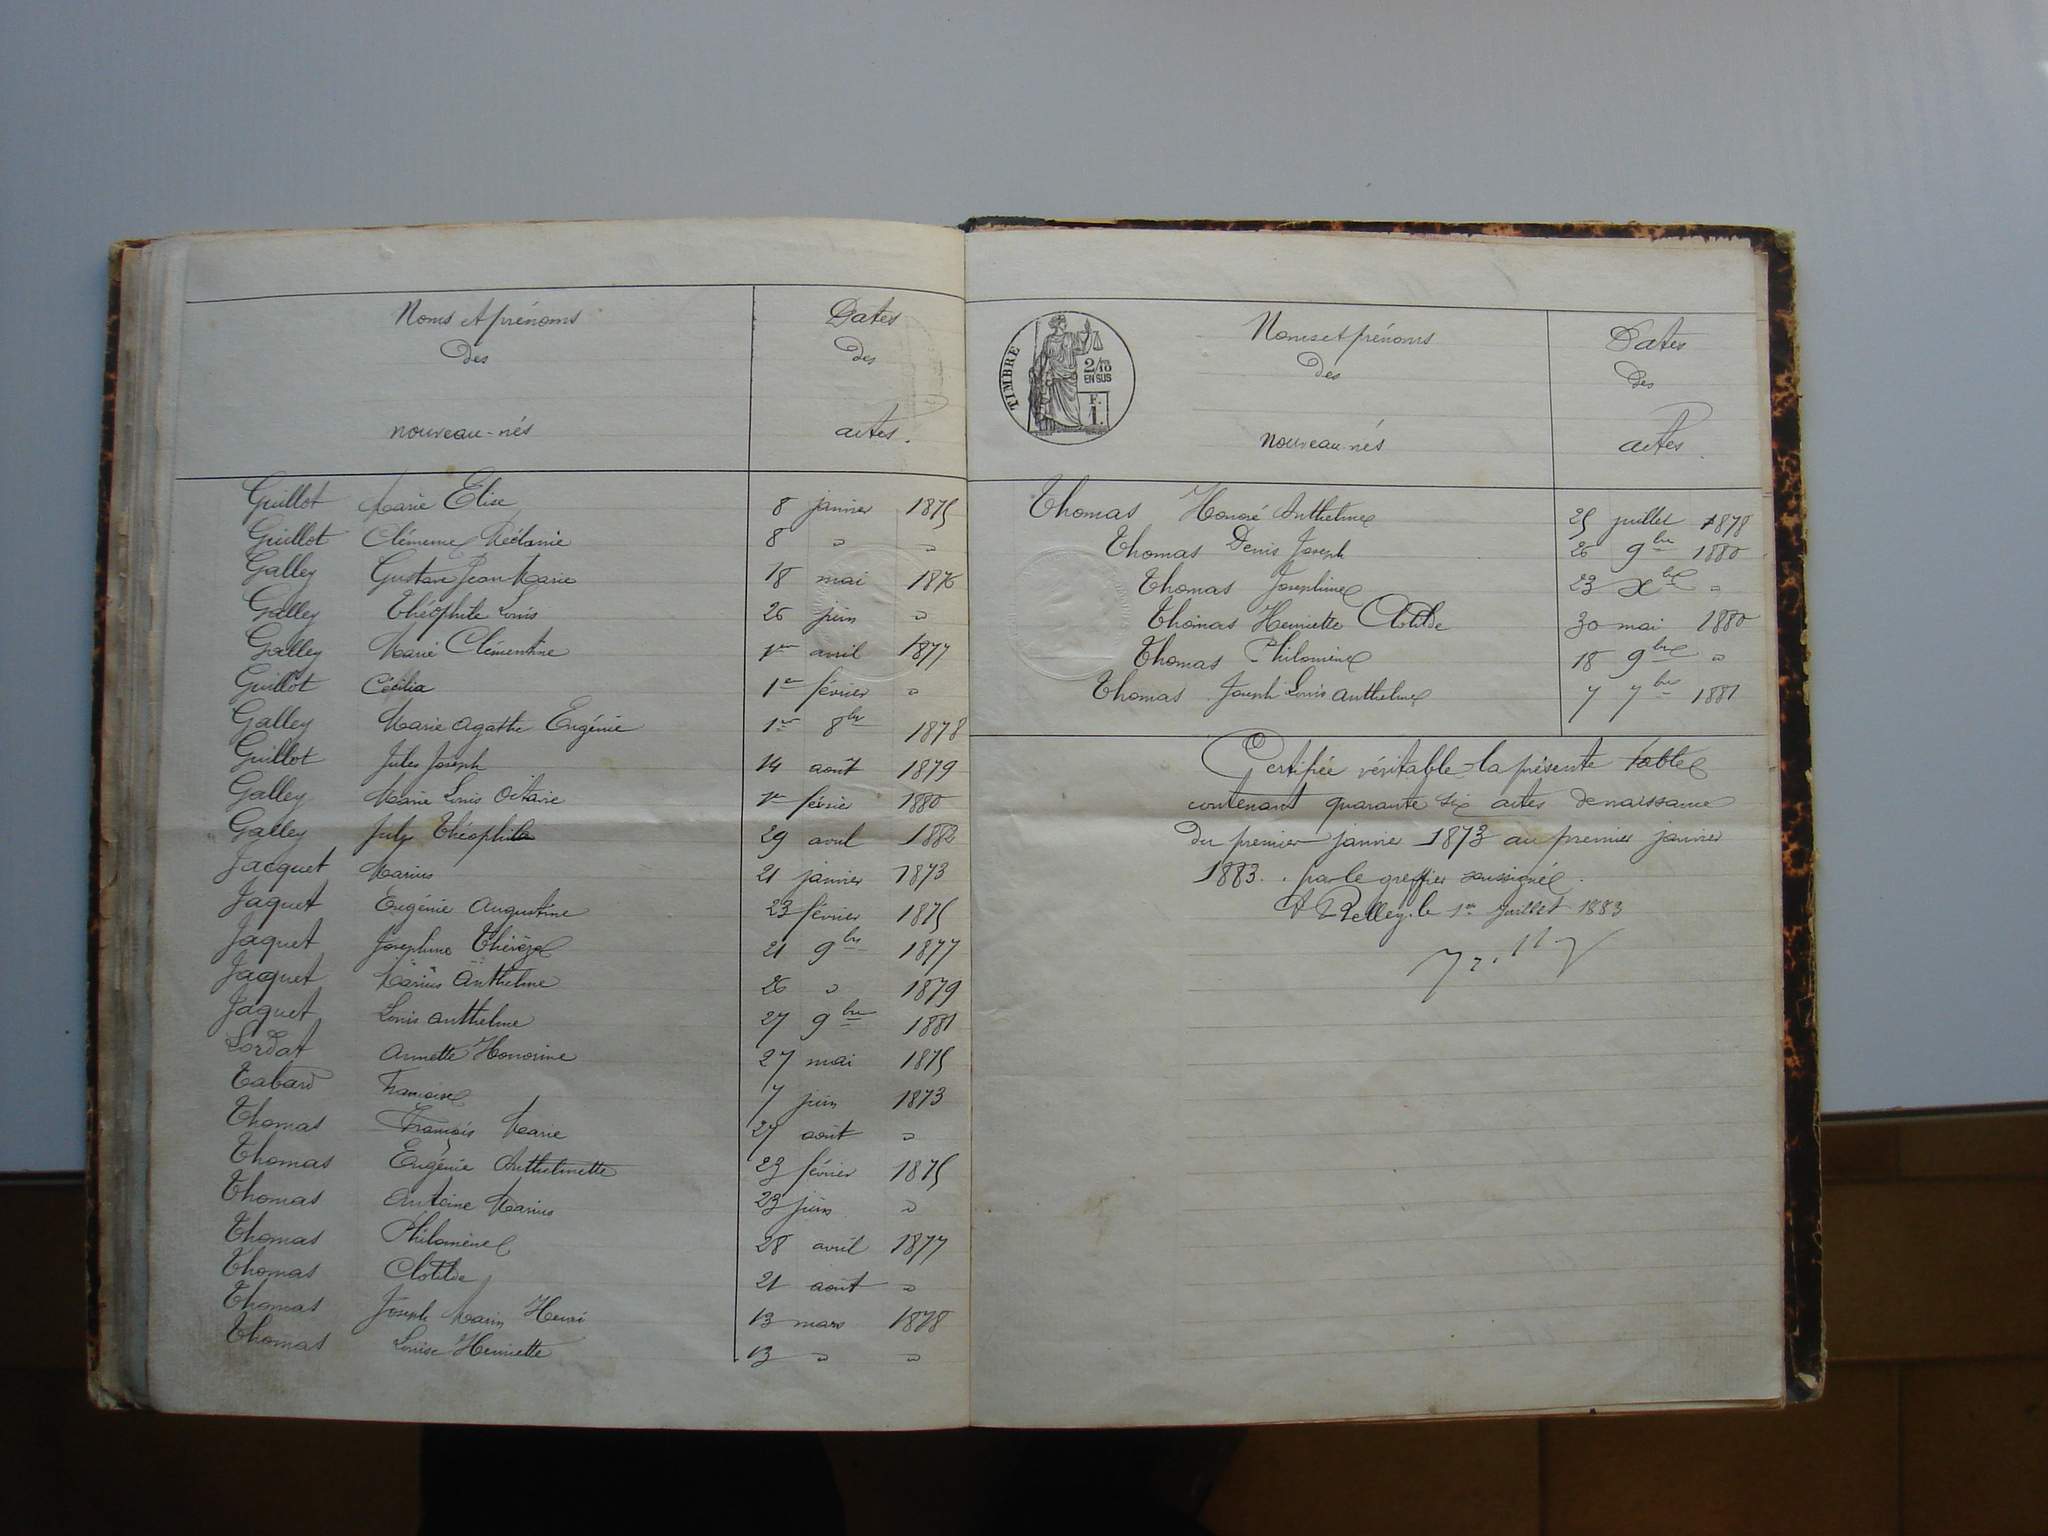 Noms et prénoms Dates
des des
nouveau-nés actes.
Guillot Marie Elise 8 janvier 1875
Guillot Clémence Mélanie 8 " "
Galley Gustave Jean Marie 18 mai 1876
Galley Théophile Louis 26 juin "
Galley Marie Clémentine 1er avril 1877
Guillot Cécilia 1er février "
Galley Marie Agathe Eugénie 1er 8bre 1878
Guillot Jules Joseph 14 août 1879
Galley Marie Louis Octavie 1er février 1880
Galley July Théophila 29 avril 1882
Jacquet Marius 21 janvier 1873
Jaquet Eugénie Augustine 23 février 1875
Jaquet Joséphine Thérèze 21 9bre 1877
Jacquet Marius Anthelme 26 " 1879
Jaquet Louis Anthelme 27 9bre 1881
Lordat Annette Honorine 27 mai 1875
Tabard Françoise 7 juin 1873
Thomas François Marie 27 août "
Thomas Eugénie Anthelmette 23 février 1875
Thomas Antoine Marius 23 juin "
Thomas Philomène 28 avril 1877
Thomas Clotilde 21 août "
Thomas Joseph Marin Henri 13 mars 1878
Thomas Louise Henriette 13 " "
TIMBRE
2/10
EN SUS
F.
1.
Noms et prénoms Dates
des des
nouveau-nés actes.
Thomas Honoré Anthelme 25 juillet 1878
Thomas Denis Joseph 26 9bre 1880
Thomas Joséphine 23 Xbre "
Thomas Henriette Clotilde 30 mai 1880
Thomas Philomène 18 9bre "
Thomas Joseph Louis Anthelme 7 7bre 1881
Certifiée véritable la présente table
contenant quarante six actes de naissance
du premier janvier 1873 au premier janvier
1883. par le greffier soussigné.
A Belley, le 1er Juillet 1883